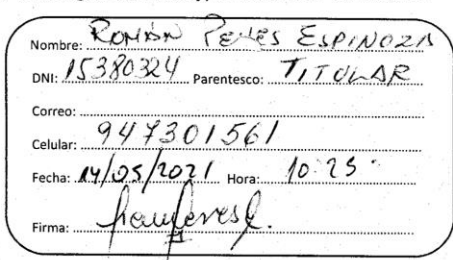 Nombre: ROMÁN PERES ESPINOZA
DNI: 15380324 Parentesco: TITULAR
Correo:
Celular: 947301561
Fecha: 14/05/2021 Hora: 10:25
Firma: